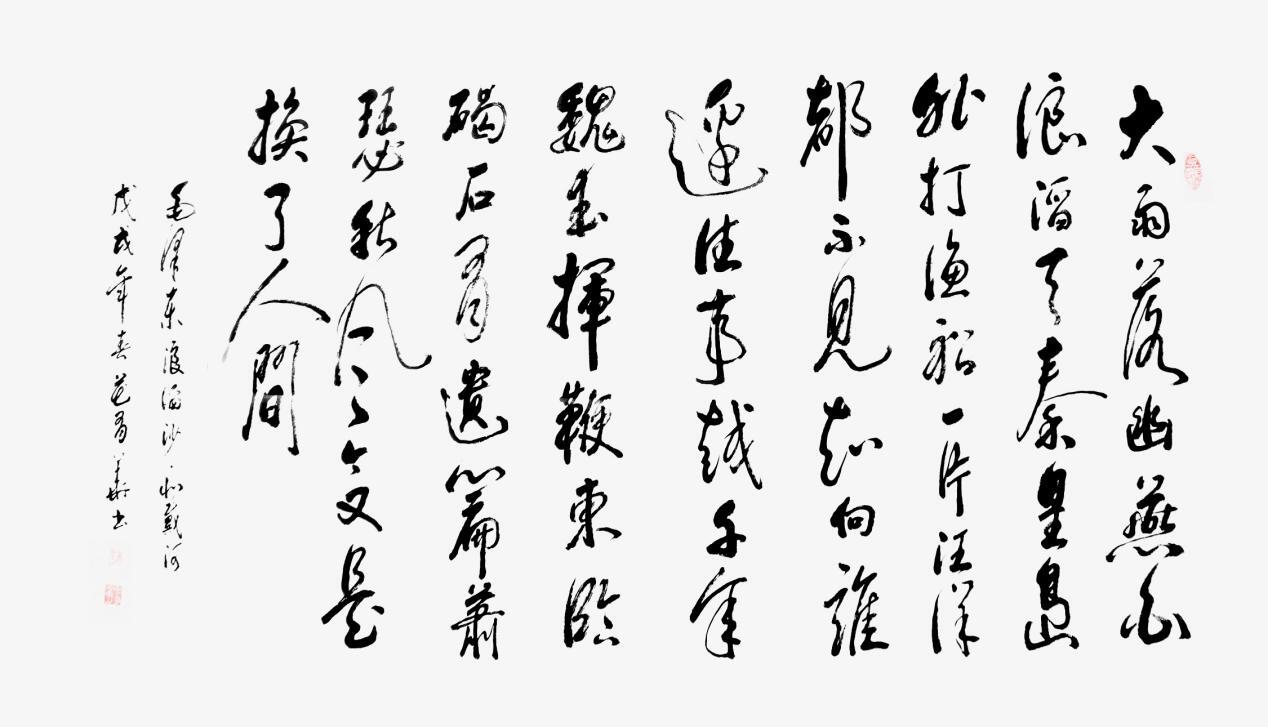 大雨落幽燕白
浪滔天秦皇島
外打漁船一片汪洋
都不見知向誰
邊往事越千年
魏武揮鞭東臨
碣石有遺篇蕭
瑟秋風今又是
換了人間
毛澤東浪淘沙·北戴河
戊戌年春